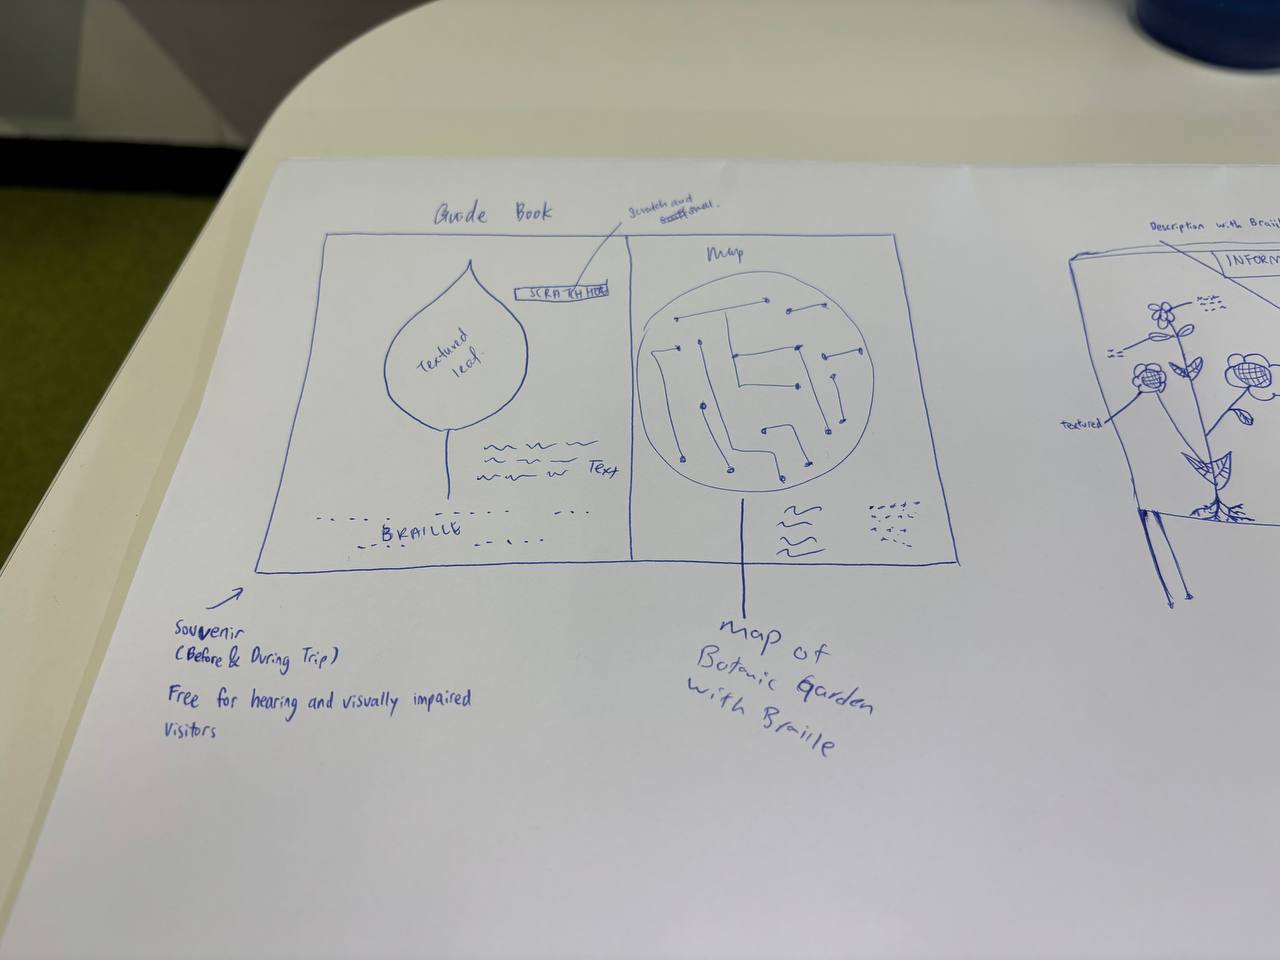 Guide Book
Scratch and
smell.
SCRATCH HERE
Textured
leaf.
Text
BRAILLE
Map
Souvenir
(Before & During Trip)
Free for hearing and visually impaired
Visitors
Map of
Botanic Garden
with Braille
Description with Braill
INFORM
Textured